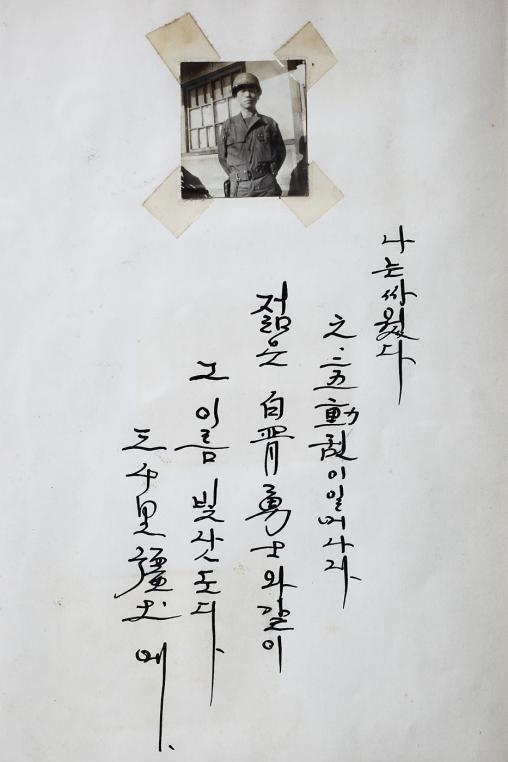 나는 싸웠다
六.二五動乱이 일어나자
젊은 白骨勇士와 같이
그 이름 빛나도다
三千里疆土에.